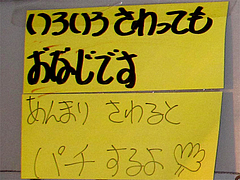 いろいろさわっても
おなじです
あんまり さわると
パチするよ